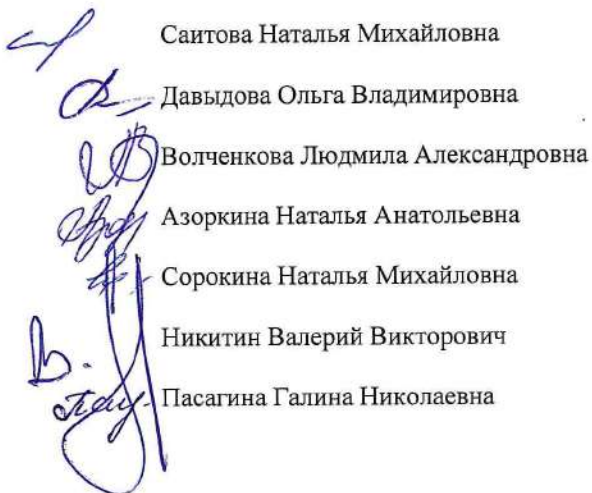 Саитова Наталья Михайловна
Давыдова Ольга Владимировна
Волченкова Людмила Александровна
Азоркина Наталья Анатольевна
Сорокина Наталья Михайловна
Никитин Валерий Викторович
Пасагина Галина Николаевна